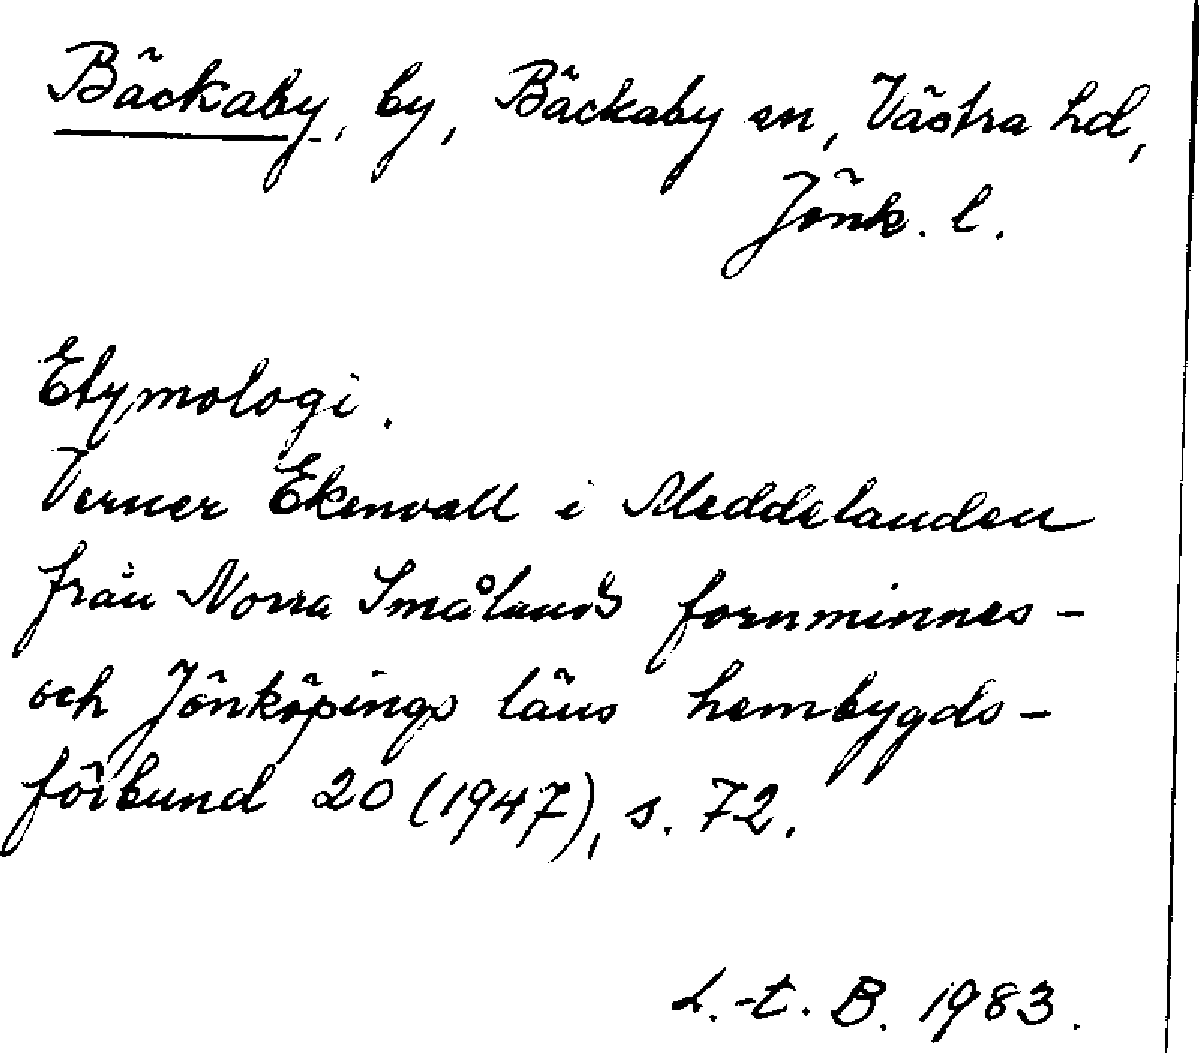 Bäckaby, by, Bäckaby sn, Västra hd,
Jönk. l.
Etymologi.
Verner Ekenvall i Meddelanden
från Norra Smålands fornminnes-
och Jönköpings läns hembygds-
förbund 20 (1947), s. 72.
L.-t. B. 1983.